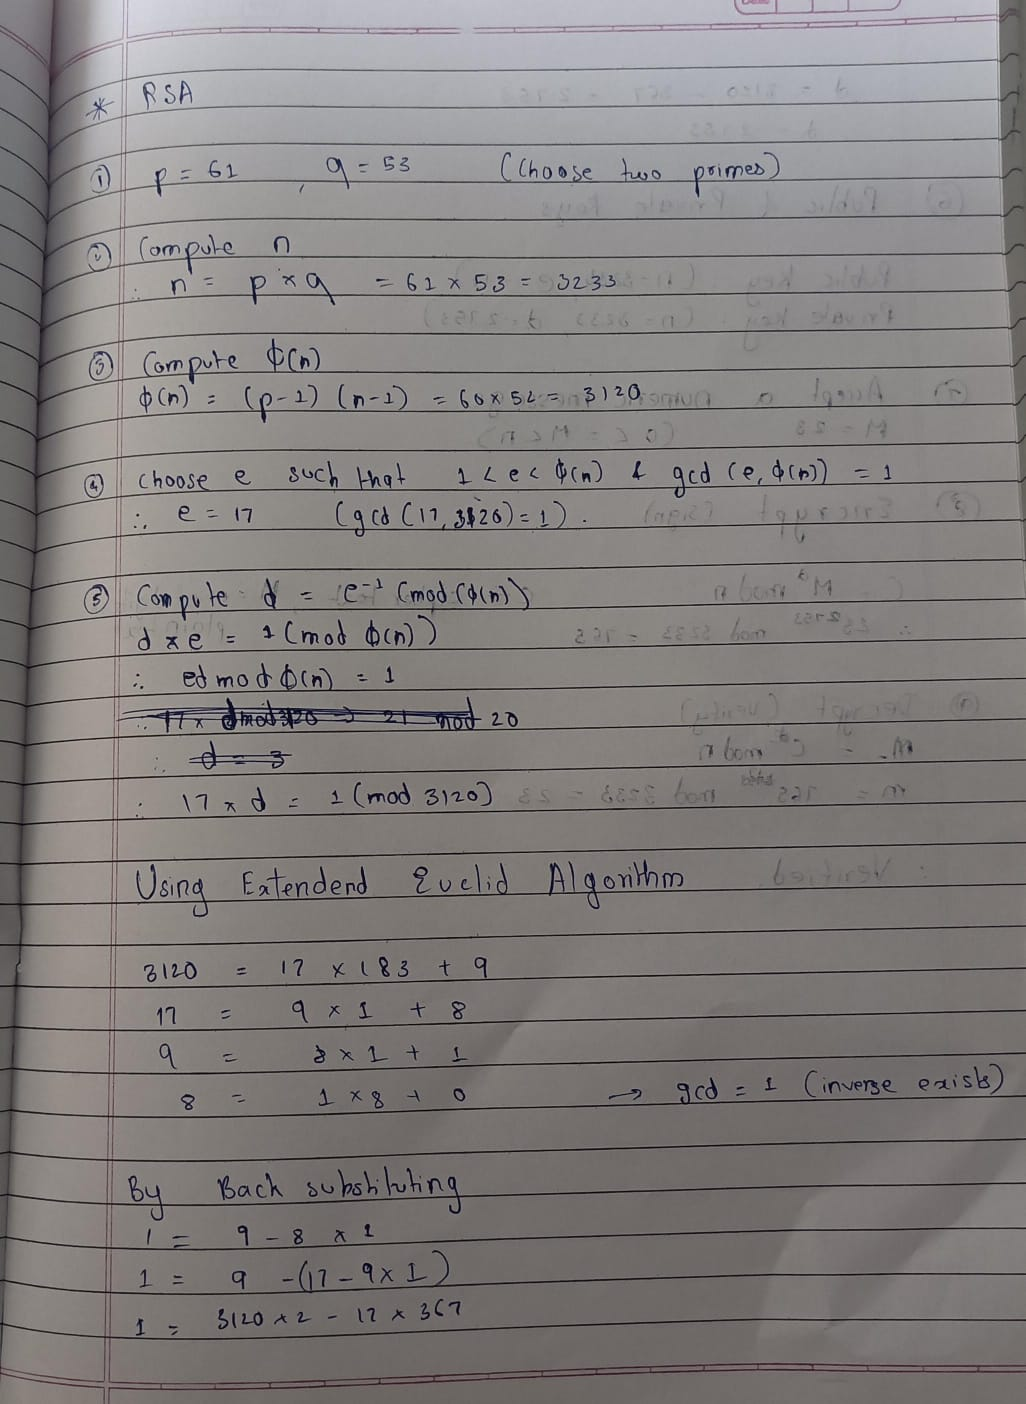 * RSA
① p = 61 , q = 53 (Choose two primes)
② Compute n
∴ n = p × q = 61 × 53 = 3233
③ Compute ϕ(n)
ϕ(n) = (p-1) (n-1) = 60 × 52 = 3120
④ choose e such that 1 < e < ϕ(n) & gcd (e, ϕ(n)) = 1
∴ e = 17 (gcd (17, 3120) = 1).
⑤ Compute d = e⁻¹ (mod (ϕ(n))
d × e = 1 (mod ϕ(n))
∴ ed mod ϕ(n) = 1
∴ 17 × d mod 3120 => 21 mod 20
∴ d = 3
∴ 17 × d = 1 (mod 3120)
Using Extendend Euclid Algorithm
3120 = 17 × 183 + 9
17 = 9 × 1 + 8
9 = 8 × 1 + 1
8 = 1 × 8 + 0 → gcd = 1 (inverse exists)
By Back substituting
1 = 9 - 8 × 1
1 = 9 - (17 - 9 × 1)
1 = 3120 × 2 - 17 × 367